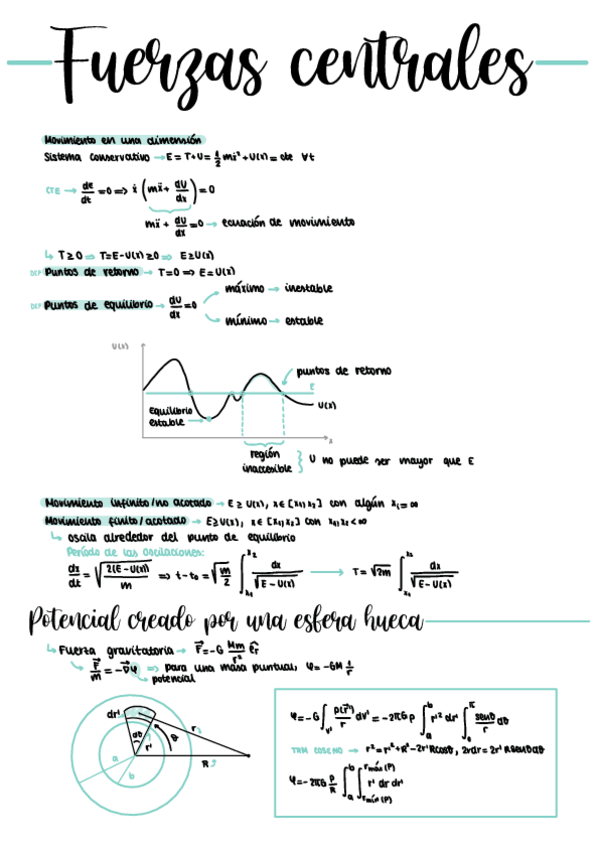 Fuerzas centrales
Movimiento en una dimensión
Sistema conservativo → E = T+U = 1/2 mẋ² + U(x) = cte ∀t
CTE → dE/dt = 0 ⇒ ẋ (mẍ + dU/dx) = 0
mẍ + dU/dx = 0 → ecuación de movimiento
↳ T≥0 ⇒ T=E-U(x)≥0 ⇒ E≥U(x)
DEF Puntos de retorno → T=0 ⇒ E=U(x)
máximo → inestable
DEF Puntos de equilibrio → dU/dx = 0
mínimo → estable
U(x)
puntos de retorno
E
U(x)
equilibrio
estable
x
región
inaccesible } U no puede ser mayor que E
Movimiento infinito/no acotado → E ≥ U(x), x ∈ [x₁,x₂] con algún xᵢ=∞
Movimiento finito/acotado → E≥U(x), x∈[x₁,x₂] con x₁,x₂<∞
↳ oscila alrededor del punto de equilibrio
Período de las oscilaciones:
dx/dt = √(2(E-U(x))/m) ⇒ t-t₀ = √(m/2) ∫_{x₁}^{x₂} dx/√(E-U(x)) → T = √(2m) ∫_{x₁}^{x₂} dx/√(E-U(x))
Potencial creado por una esfera hueca
↳ Fuerza gravitatoria → F⃗ = -G Mm/r² êr
↳ F⃗/m = -∇⃗φ ⇒ para una masa puntual φ = -GM 1/r
↳ potencial
dr'
dθ
r'
θ
r
R
a
b
φ = -G ∫_{V'} ρ(r⃗')/r dV' = -2πGρ ∫_a^b r'² dr' ∫_0^π senθ/r dθ
TRM COSENO → r² = r'² + R² - 2r'Rcosθ, 2rdr = 2r'Rsenθdθ
φ = -2πG ρ/R ∫_a^b ∫_{rmín(P)}^{rmáx(P)} r' dr dr'